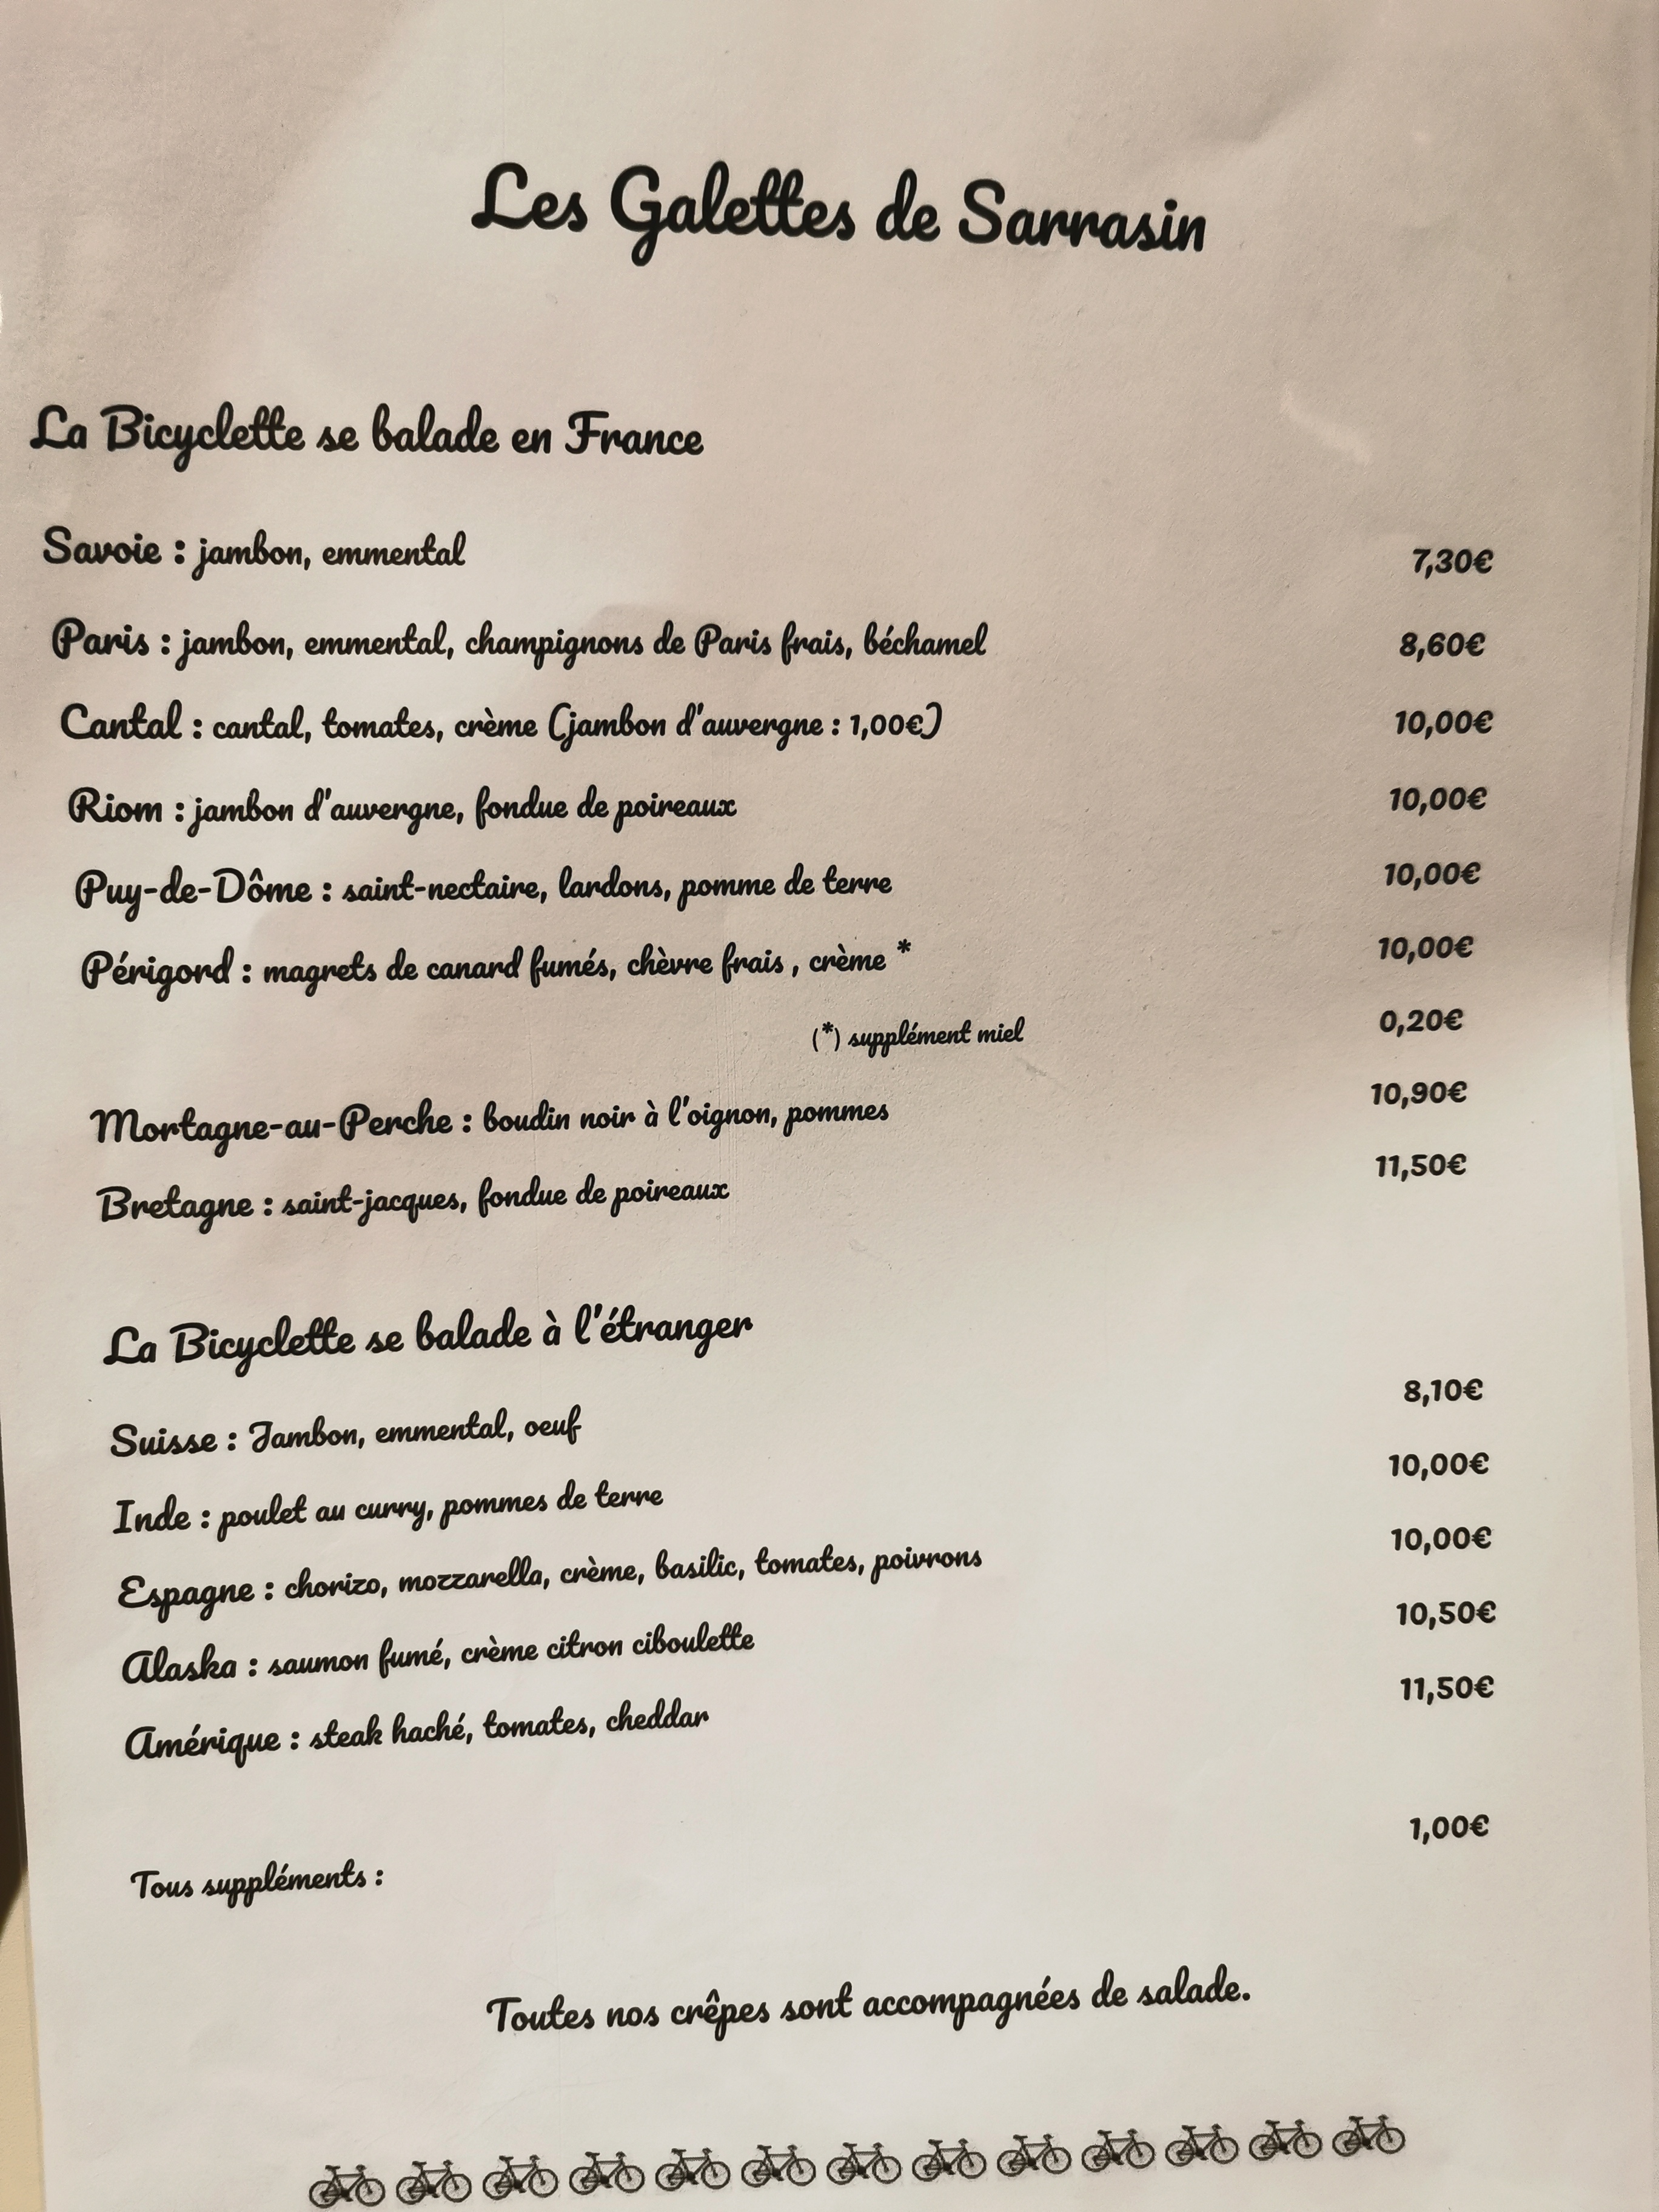 Les Galettes de Sarrasin
La Bicyclette se balade en France
Savoie : jambon, emmental 7,30€
Paris : jambon, emmental, champignons de Paris frais, béchamel 8,60€
Cantal : cantal, tomates, crème (jambon d'auvergne : 1,00€) 10,00€
Riom : jambon d'auvergne, fondue de poireaux 10,00€
Puy-de-Dôme : saint-nectaire, lardons, pomme de terre 10,00€
Périgord : magrets de canard fumés, chèvre frais , crème * 10,00€
(*) supplément miel 0,20€
Mortagne-au-Perche : boudin noir à l'oignon, pommes 10,90€
Bretagne : saint-jacques, fondue de poireaux 11,50€
La Bicyclette se balade à l'étranger
Suisse : Jambon, emmental, oeuf 8,10€
Inde : poulet au curry, pommes de terre 10,00€
Espagne : chorizo, mozzarella, crème, basilic, tomates, poivrons 10,00€
Alaska : saumon fumé, crème citron ciboulette 10,50€
Amérique : steak haché, tomates, cheddar 11,50€
Tous suppléments : 1,00€
Toutes nos crêpes sont accompagnées de salade.